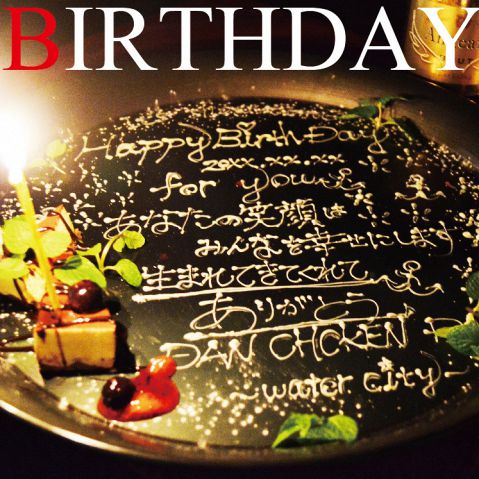 BIRTHDAY
Happy BirthDay
20XX.XX.XX
for you
あなたの笑顔は
みんなを幸せにします
生まれてきてくれて
ありがとう
DAN CHICKEN D
~water city~